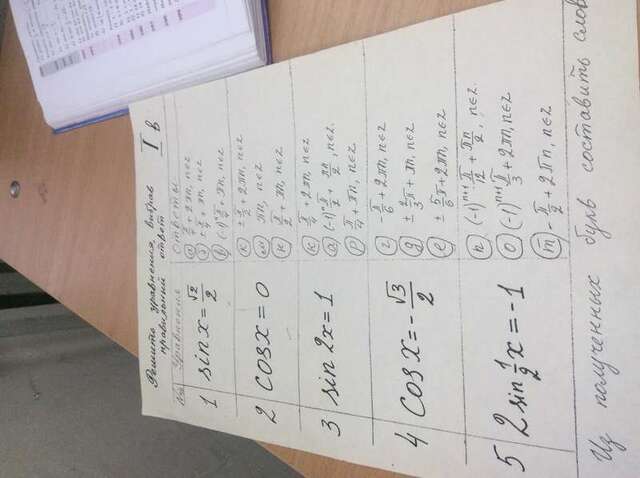 Решить уравнения, выбрав
правильный ответ
I в
№ Уравнения Ответы
1 sin x = √2/2
а) π/4 + 2πn, n∈z
б) ± π/4 + πn, n∈z
в) (-1)ⁿ π/4 + πn, n∈z
2 cos x = 0
к) ± π/2 + 2πn, n∈z
πn, n∈z
н) π/2 + πn, n∈z
3 sin 2x = 1
к) π/4 + 2πn, n∈z
а) (-1)ⁿ π/2 + πn/2, n∈z.
р) π/4 + πn, n∈z
4 cos x = -√3/2
г) -π/6 + 2πn, n∈z
д) ± 2/3 π + πn, n∈z
е) ± 5/6 π + 2πn, n∈z
5 2 sin 1/2 x = -1
п) (-1)ⁿ⁺¹ π/12 + πn/2, n∈z.
о) (-1)ⁿ⁺¹ π/3 + 2πn, n∈z
т) -π/2 + 2πn, n∈z
Из полученных букв составить слов